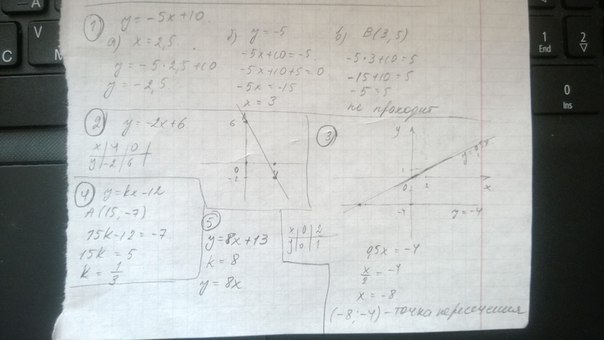 1) y = -5x+10.
а) x = 2,5
y = -5·2,5+10
y = -2,5
б) y = -5
-5x+10 = -5
-5x+10+5=0
-5x = -15
x = 3
в) B(3,5)
-5·3+10=5
-15+10=5
-5=5
не проходит
2) y = -2x+6
x 4 0
y -2 6
6
0
-2
4
3)
y
1
0
2
x
-4
y = 0,5x
y=-4
x 0 2
y 0 1
0,5x = -4
x/2 = -4
x = -8
(-8;-4) - точка пересечения
4) y=kx-12
A(15,-7)
15k-12=-7
15k = 5
k = 1/3
5)
y=8x+13
k = 8
y = 8x
1 End
2
0 Ins